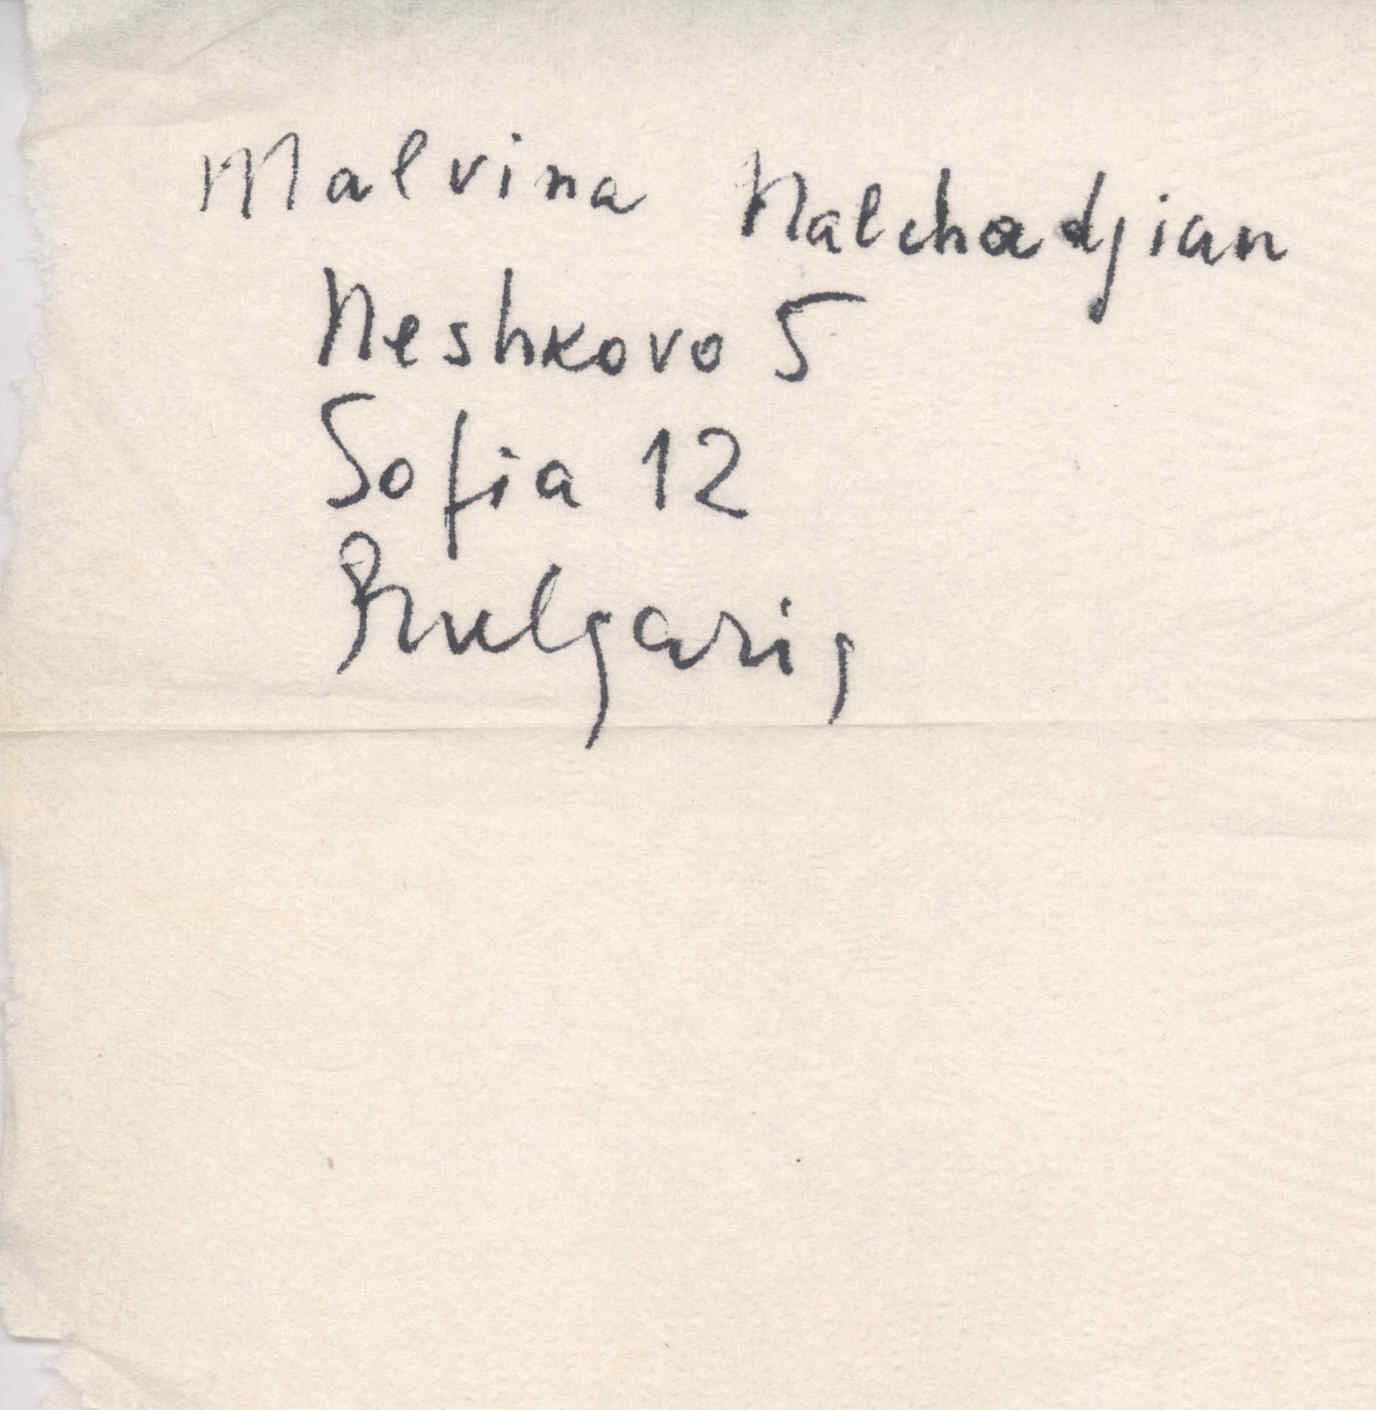 Malvina Nalchadjian
Neshkovo 5
Sofia 12
Bulgaria